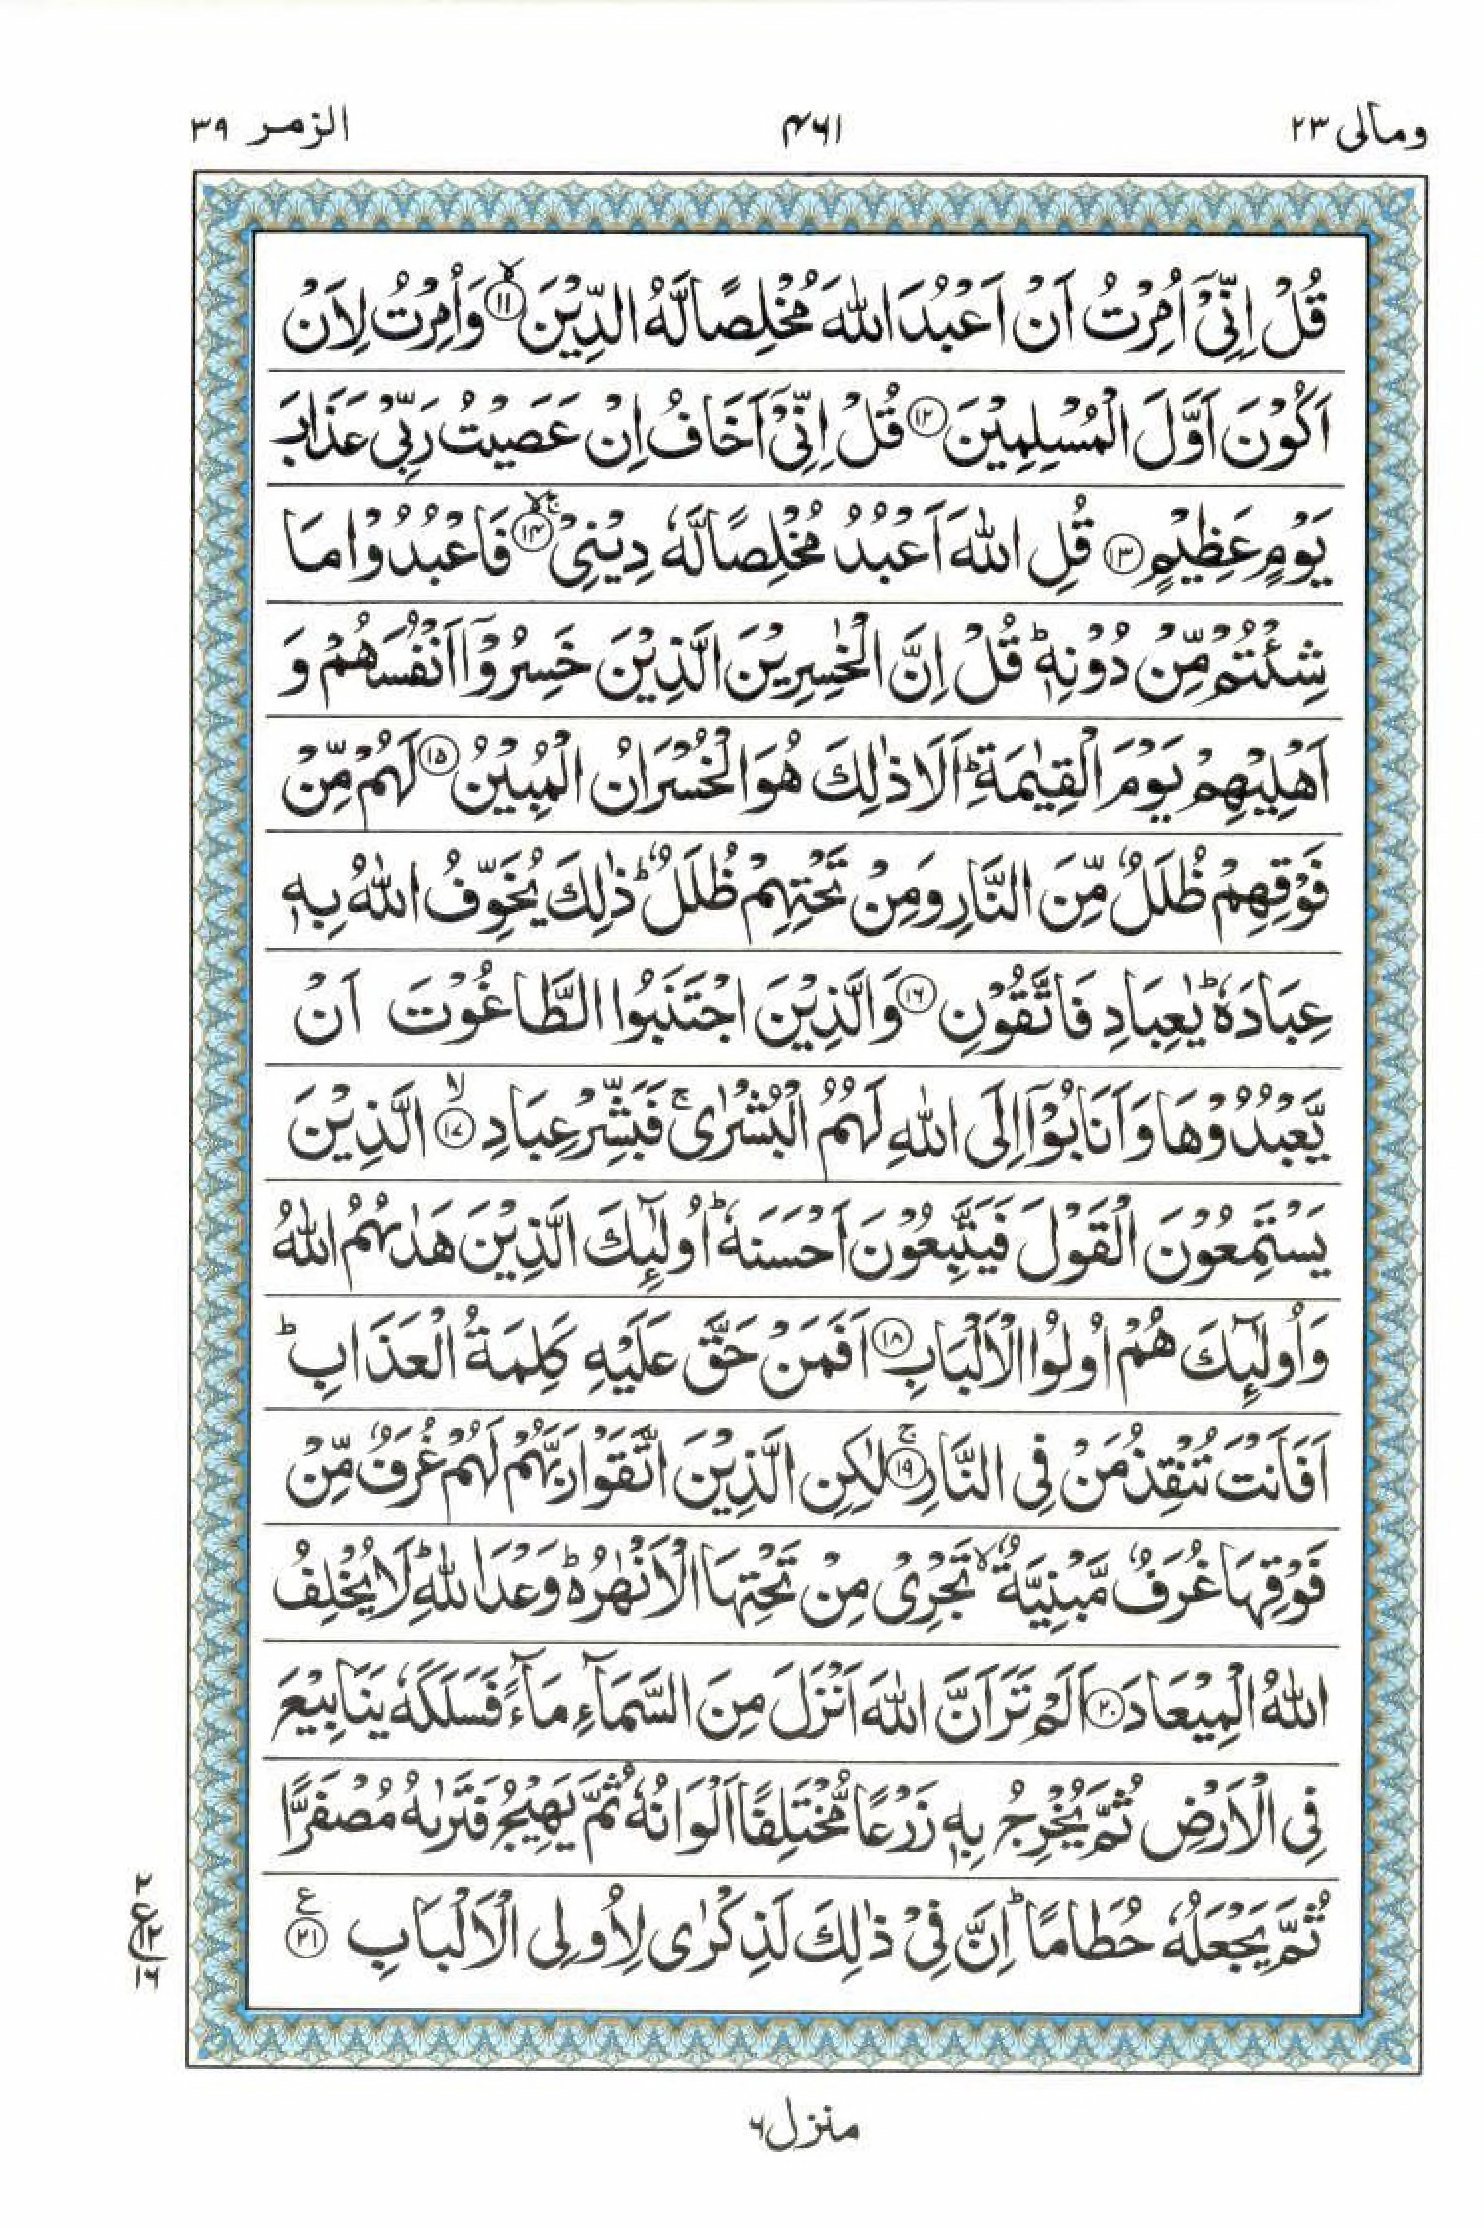 ومالی ۲۳ ۴۶۱ الزمر ۳۹
قُلْ اِنِّیْۤ اُمِرْتُ اَنْ اَعْبُدَ اللّٰهَ مُخْلِصًا لَّهُ الدِّیْنَ ۙ﴿۱۱﴾ وَاُمِرْتُ لِاَنْ
اَکُوْنَ اَوَّلَ الْمُسْلِمِیْنَ ﴿۱۲﴾ قُلْ اِنِّیْۤ اَخَافُ اِنْ عَصَیْتُ رَبِّیْ عَذَابَ
یَوْمٍ عَظِیْمٍ ﴿۱۳﴾ قُلِ اللّٰهَ اَعْبُدُ مُخْلِصًا لَّهٗ دِیْنِیْ ﴿ۙۚ۱۴﴾ فَاعْبُدُوْا مَا
شِئْتُمْ مِّنْ دُوْنِهٖ ؕ قُلْ اِنَّ الْخٰسِرِیْنَ الَّذِیْنَ خَسِرُوْۤا اَنْفُسَهُمْ وَ
اَهْلِیْهِمْ یَوْمَ الْقِیٰمَةِ ؕ اَلَا ذٰلِكَ هُوَ الْخُسْرَانُ الْمُبِیْنُ ﴿۱۵﴾ لَهُمْ مِّنْ
فَوْقِهِمْ ظُلَلٌ مِّنَ النَّارِ وَمِنْ تَحْتِهِمْ ظُلَلٌ ؕ ذٰلِكَ یُخَوِّفُ اللّٰهُ بِهٖ
عِبَادَهٗ ؕ یٰعِبَادِ فَاتَّقُوْنِ ﴿۱۶﴾ وَالَّذِیْنَ اجْتَنَبُوا الطَّاغُوْتَ اَنْ
یَّعْبُدُوْهَا وَاَنَابُوْۤا اِلَی اللّٰهِ لَهُمُ الْبُشْرٰی ۚ فَبَشِّرْ عِبَادِ ﴿ۙ۱۷﴾ الَّذِیْنَ
یَسْتَمِعُوْنَ الْقَوْلَ فَیَتَّبِعُوْنَ اَحْسَنَهٗ ؕ اُولٰٓئِكَ الَّذِیْنَ هَدٰىهُمُ اللّٰهُ
وَاُولٰٓئِكَ هُمْ اُولُوا الْاَلْبَابِ ﴿۱۸﴾ اَفَمَنْ حَقَّ عَلَیْهِ کَلِمَةُ الْعَذَابِ ؕ
اَفَاَنْتَ تُنْقِذُ مَنْ فِی النَّارِ ﴿ۚ۱۹﴾ لٰکِنِ الَّذِیْنَ اتَّقَوْا رَبَّهُمْ لَهُمْ غُرَفٌ مِّنْ
فَوْقِهَا غُرَفٌ مَّبْنِیَّةٌ ۙ تَجْرِیْ مِنْ تَحْتِهَا الْاَنْهٰرُ ؕ۬ وَعْدَ اللّٰهِ ؕ لَا یُخْلِفُ
اللّٰهُ الْمِیْعَادَ ﴿۲۰﴾ اَلَمْ تَرَ اَنَّ اللّٰهَ اَنْزَلَ مِنَ السَّمَآءِ مَآءً فَسَلَکَهٗ یَنَابِیْعَ
فِی الْاَرْضِ ثُمَّ یُخْرِجُ بِهٖ زَرْعًا مُّخْتَلِفًا اَلْوَانُهٗ ثُمَّ یَهِیْجُ فَتَرٰىهُ مُصْفَرًّا
ثُمَّ یَجْعَلُهٗ حُطَامًا ؕ اِنَّ فِیْ ذٰلِكَ لَذِکْرٰی لِاُولِی الْاَلْبَابِ ﴿۲۱﴾ ع
۲
ع ۱۲
۱۶
منزل ۶